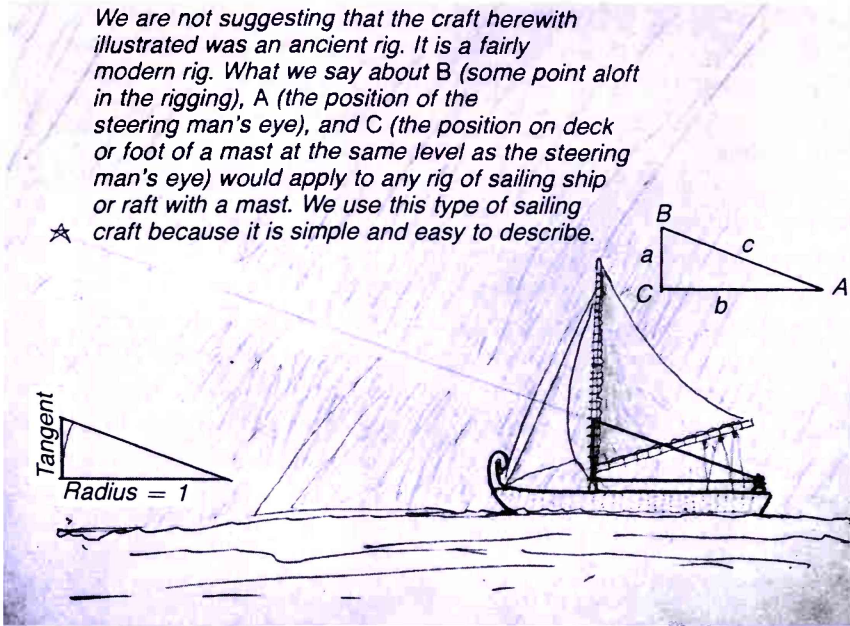 We are not suggesting that the craft herewith
illustrated was an ancient rig. It is a fairly
modern rig. What we say about B (some point aloft
in the rigging), A (the position of the
steering man's eye), and C (the position on deck
or foot of a mast at the same level as the steering
man's eye) would apply to any rig of sailing ship
or raft with a mast. We use this type of sailing
craft because it is simple and easy to describe.
B
a
c
C
A
b
Tangent
Radius = 1